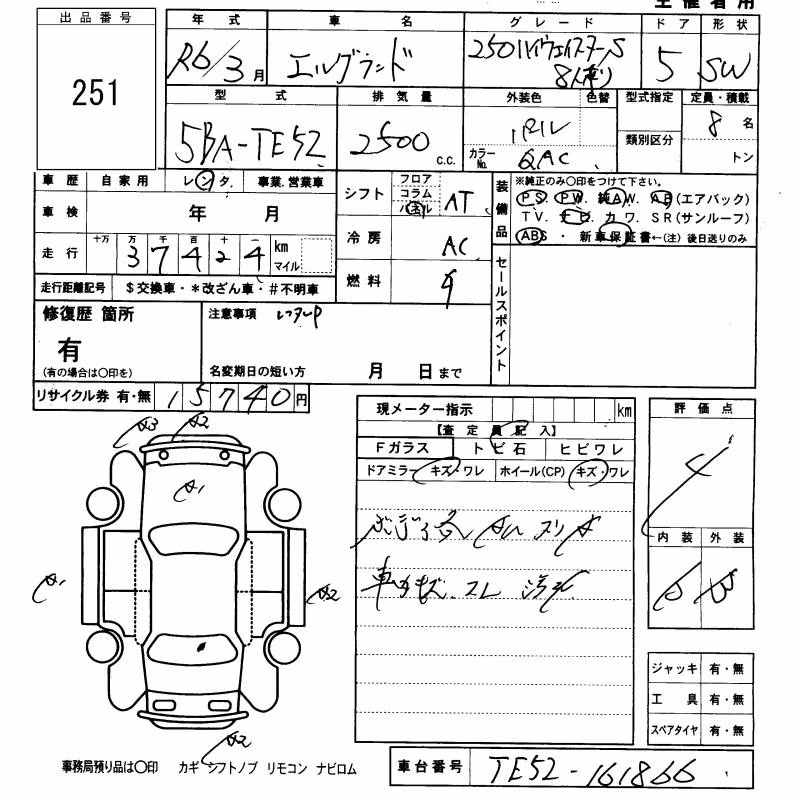 主催者用
出品番号
251
年式 車名 グレード ドア 形状
R6/3月 エルグランド 250ハイウェイスターS 8人乗り 5 SW
型式 排気量 外装色 色替 型式指定 定員・積載
5BA-TE52 2500 c.c. パール 類別区分 8名
カラーNo. QAC トン
車歴 自家用 レンタ. 事業.営業車
車検 年 月
走行 十万 万 千 百 十 一
37424 km マイル
走行距離記号 $交換車・*改ざん車・#不明車
シフト フロア コラム パネル AT
冷房 AC
燃料
装備品 ※純正のみ〇印をつけて下さい。
PS. PW. 純AW. AB(エアバック)
TV. ナビ. カワ. SR(サンルーフ)
ABS ・ 新車保証書←(注)後日送りのみ
セールスポイント
修復歴 箇所
有
(有の場合は〇印を)
注意事項 レンタUP
名変期日の短い方 月 日まで
リサイクル券 有・無 15740円
現メーター指示 km
【査定員記入】
Fガラス トビ石 ヒビワレ
ドアミラー キズ・ワレ ホイール(CP) キズ・ワレ
スリキ
スレ 汚れ
評価点
4
内装 外装
B B
A3 A2
A1
A1
A2
A2
ジャッキ 有・無
工具 有・無
スペアタイヤ 有・無
事務局預り品は〇印 カギ シフトノブ リモコン ナビロム
車台番号 TE52-161866